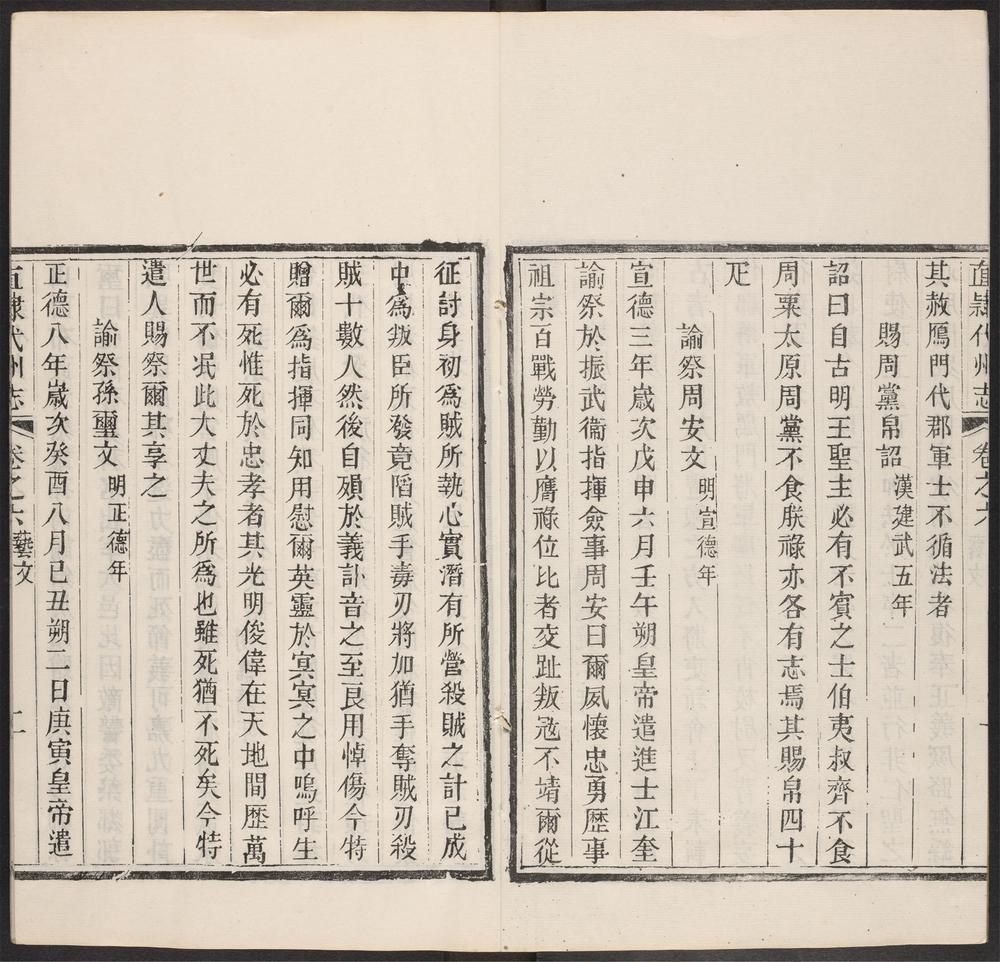 直隷代州志 卷之六
其赦鴈門代郡軍士不循法者
賜周黨帛詔 漢建武五年
詔曰自古明王聖主必有不賓之士伯夷叔齊不食
周粟太原周黨不食朕祿亦各有志焉其賜帛四十
疋
諭祭周安文 明宣德年
宣德三年歲次戊申六月壬午朔皇帝遣進士江奎
諭祭於振武衞指揮僉事周安曰爾夙懷忠勇歷事
祖宗百戰勞勤以膺祿位比者交趾叛𡨥不靖爾從
征討身初爲賊所執心實潛有所營殺賊之計已成
中爲叛臣所發竟陷賊手毒刃將加猶手奪賊刃殺
賊十數人然後自殞於義訃音之至良用悼傷今特
贈爾爲指揮同知用慰爾英靈於冥冥之中嗚呼生
必有死惟死於忠孝者其光明俊偉在天地間歷萬
世而不泯此大丈夫之所爲也雖死猶不死矣今特
遣人賜祭爾其享之
諭祭孫璽文 明正德年
正德八年歲次癸酉八月己丑朔二日庚寅皇帝遣
直隷代州志 卷之六 藝文